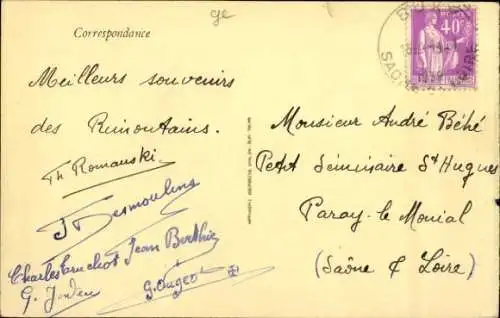 ge
Correspondance
40c
Meilleurs souvenirs
des Rimontains.
Th Romanski
J Desmoulins
Charles Cruchot Jean Berthier
G. Jorden
G. Auger
Monsieur André Béhé
Petit Séminaire St Hugues
Paray-le Monial
(Saône & Loire)